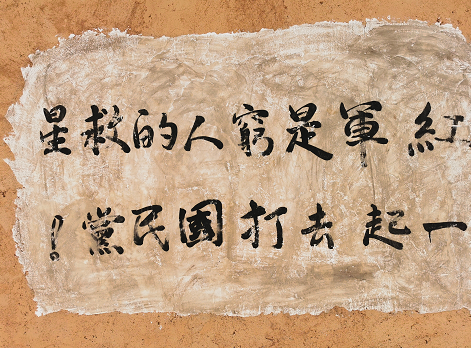 紅軍是窮人的救星
一起去打國民黨！